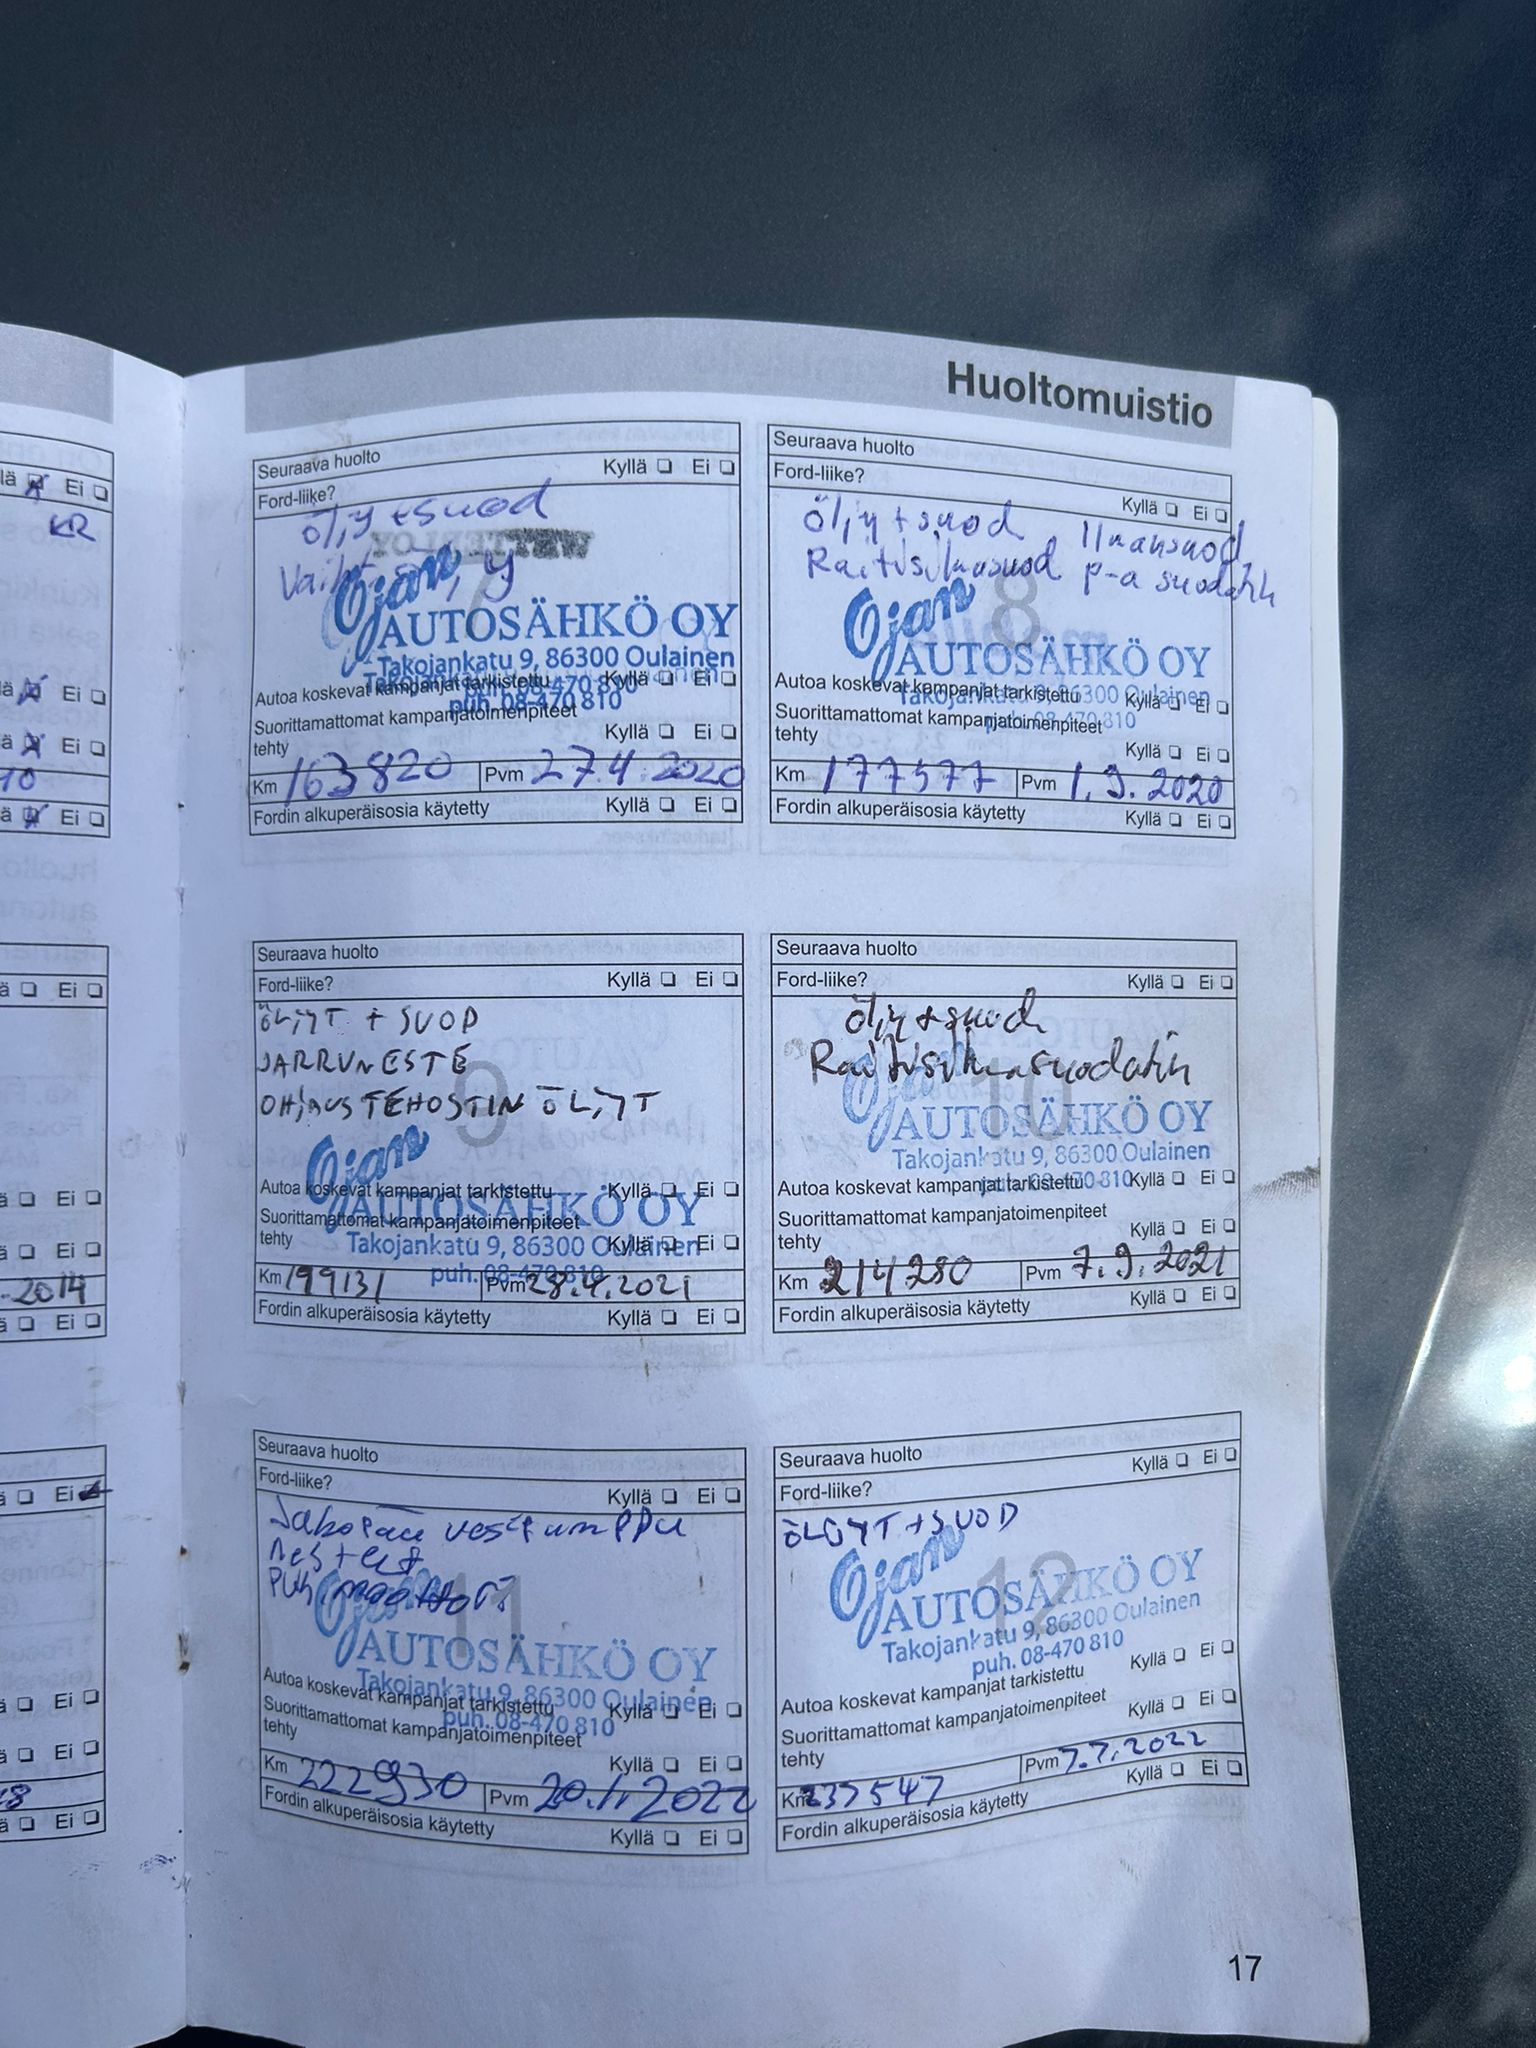 Huoltomuistio
Seuraava huolto
Ford-liike? Kyllä ❏ Ei ❏
öljy + suod
Ojan
AUTOSÄHKÖ OY
Takojankatu 9, 86300 Oulainen
puh. 08-470 810
Autoa koskevat kampanjat tarkistettu Kyllä ❏ Ei ❏
Suorittamattomat kampanjatoimenpiteet
tehty Kyllä ❏ Ei ❏
Km 163820 Pvm 27.4.2020
Fordin alkuperäisosia käytetty Kyllä ❏ Ei ❏
Seuraava huolto
Ford-liike? Kyllä ❏ Ei ❏
Öljy + suod Ilmansuod
Raitisilmasuod P-a suodatin
8
Ojan
AUTOSÄHKÖ OY
Takojankatu 9, 86300 Oulainen
puh. 08-470 810
Autoa koskevat kampanjat tarkistettu Kyllä ❏ Ei ❏
Suorittamattomat kampanjatoimenpiteet
tehty Kyllä ❏ Ei ❏
Km 177577 Pvm 1.9.2020
Fordin alkuperäisosia käytetty Kyllä ❏ Ei ❏
Seuraava huolto
Ford-liike? Kyllä ❏ Ei ❏
ÖLJYT + SUOD
JARRUNESTE
OHJAUSTEHOSTIN ÖLJYT
9
Ojan
AUTOSÄHKÖ OY
Takojankatu 9, 86300 Oulainen
puh. 08-470 810
Autoa koskevat kampanjat tarkistettu Kyllä ❏ Ei ❏
Suorittamattomat kampanjatoimenpiteet
tehty Kyllä ❏ Ei ❏
Km 199131 Pvm 28.4.2021
Fordin alkuperäisosia käytetty Kyllä ❏ Ei ❏
Seuraava huolto
Ford-liike? Kyllä ❏ Ei ❏
öljy + suod
Raitisilmasuodatin
10
Ojan
AUTOSÄHKÖ OY
Takojankatu 9, 86300 Oulainen
puh. 08-470 810
Autoa koskevat kampanjat tarkistettu Kyllä ❏ Ei ❏
Suorittamattomat kampanjatoimenpiteet
tehty Kyllä ❏ Ei ❏
Km 214280 Pvm 7.9.2021
Fordin alkuperäisosia käytetty Kyllä ❏ Ei ❏
Seuraava huolto
Ford-liike? Kyllä ❏ Ei ❏
Jakopää vesipumppu
11
Ojan
AUTOSÄHKÖ OY
Takojankatu 9, 86300 Oulainen
puh. 08-470 810
Autoa koskevat kampanjat tarkistettu Kyllä ❏ Ei ❏
Suorittamattomat kampanjatoimenpiteet
tehty Kyllä ❏ Ei ❏
Km 222930 Pvm 20.1.2022
Fordin alkuperäisosia käytetty Kyllä ❏ Ei ❏
Seuraava huolto
Ford-liike? Kyllä ❏ Ei ❏
ÖLJYT + SUOD
12
Ojan
AUTOSÄHKÖ OY
Takojankatu 9, 86300 Oulainen
puh. 08-470 810
Autoa koskevat kampanjat tarkistettu Kyllä ❏ Ei ❏
Suorittamattomat kampanjatoimenpiteet
tehty Kyllä ❏ Ei ❏
Km 237547 Pvm 7.7.2022
Fordin alkuperäisosia käytetty Kyllä ❏ Ei ❏
17